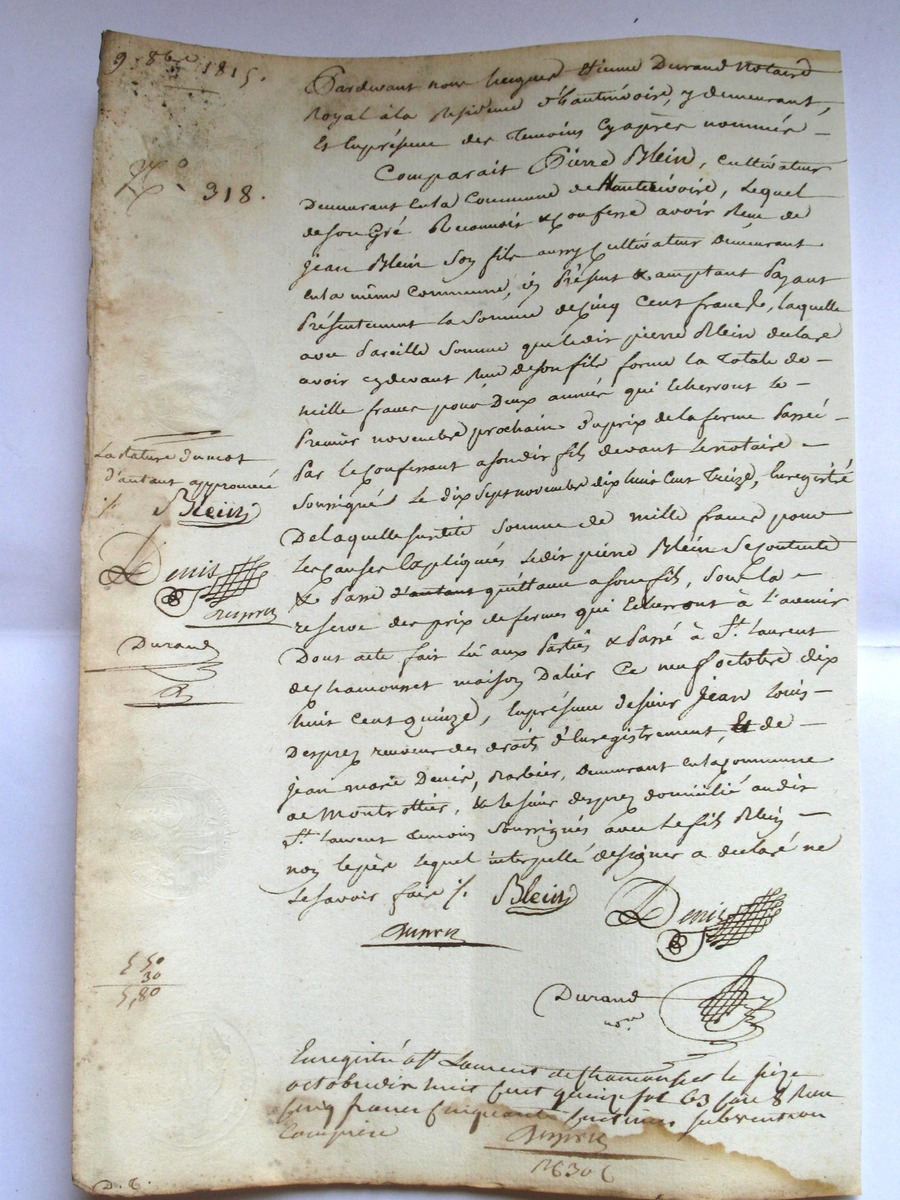 9. 8bre 1815.
No. 318.
Pardevant nous Jacques Etienne Durand Notaire
Royal à la Residence d'hauterivoire, y demeurant,
Et En presence des Temoins Cyaprès nommés –
Comparait Pierre Blein, cultivateur
Demeurant en la Commune de Hauterivoire, Lequel
de son Gré Reconnoit & Confesse avoir Reçu de
Jean Blein Son fils aussy Cultivateur Demeurant
en la même Commune, ici Présent & acceptant Payant
Présentement la Somme de Cinq Cent francs, laquelle
avec Pareille Somme que ledit pierre Blein declare
avoir cydevant Reçu de son fils forme la Totale de –
mille francs pour Deux années qui Echerront le –
Premier novembre prochain du prix de la ferme Passée –
Par le Confessant a son dit fils devant le notaire –
Soussigné Le dix Sept novembre dix huit Cent Treize, Enregistré
De laquelle susdite Somme de mille francs pour
les causes Expliqués ledit pierre Blein Se Contente
& Passe d'autant quittance a son fils, Sous la –
reserve des prix de fermes qui Echerront à l'avenir
Dont acte fait Lu aux Parties & Passé à St. Laurent
de Chamousset maison Dalier Ce neuf octobre dix
huit Cent quinze, En presence de sieur Jean Louis –
Desprez receveur des droits d'Enregistrement, Et de –
Jean Marie Denis, Barbier, Demeurant en la Commune
de Montrottier, & le sieur desprez domicilié au dit
St. Laurent Temoins Soussignés avec Le fils Blein –
non le père lequel interpellé de signer a declaré ne
le savoir faire ./.
Blein
Denis
Desprez
Durand
nore
La Rature du mot
d'autant approuvée
./. Blein
Denis
Desprez
Durand
D
5 50
30
5,80
Enregistré a St Laurent de Chamousset le seize
octobre dix huit Cent quinze fol 63 Case 8 Reçu
Cinq francs Cinquante Centimes subvention
Comprise
Desprez
D. C.